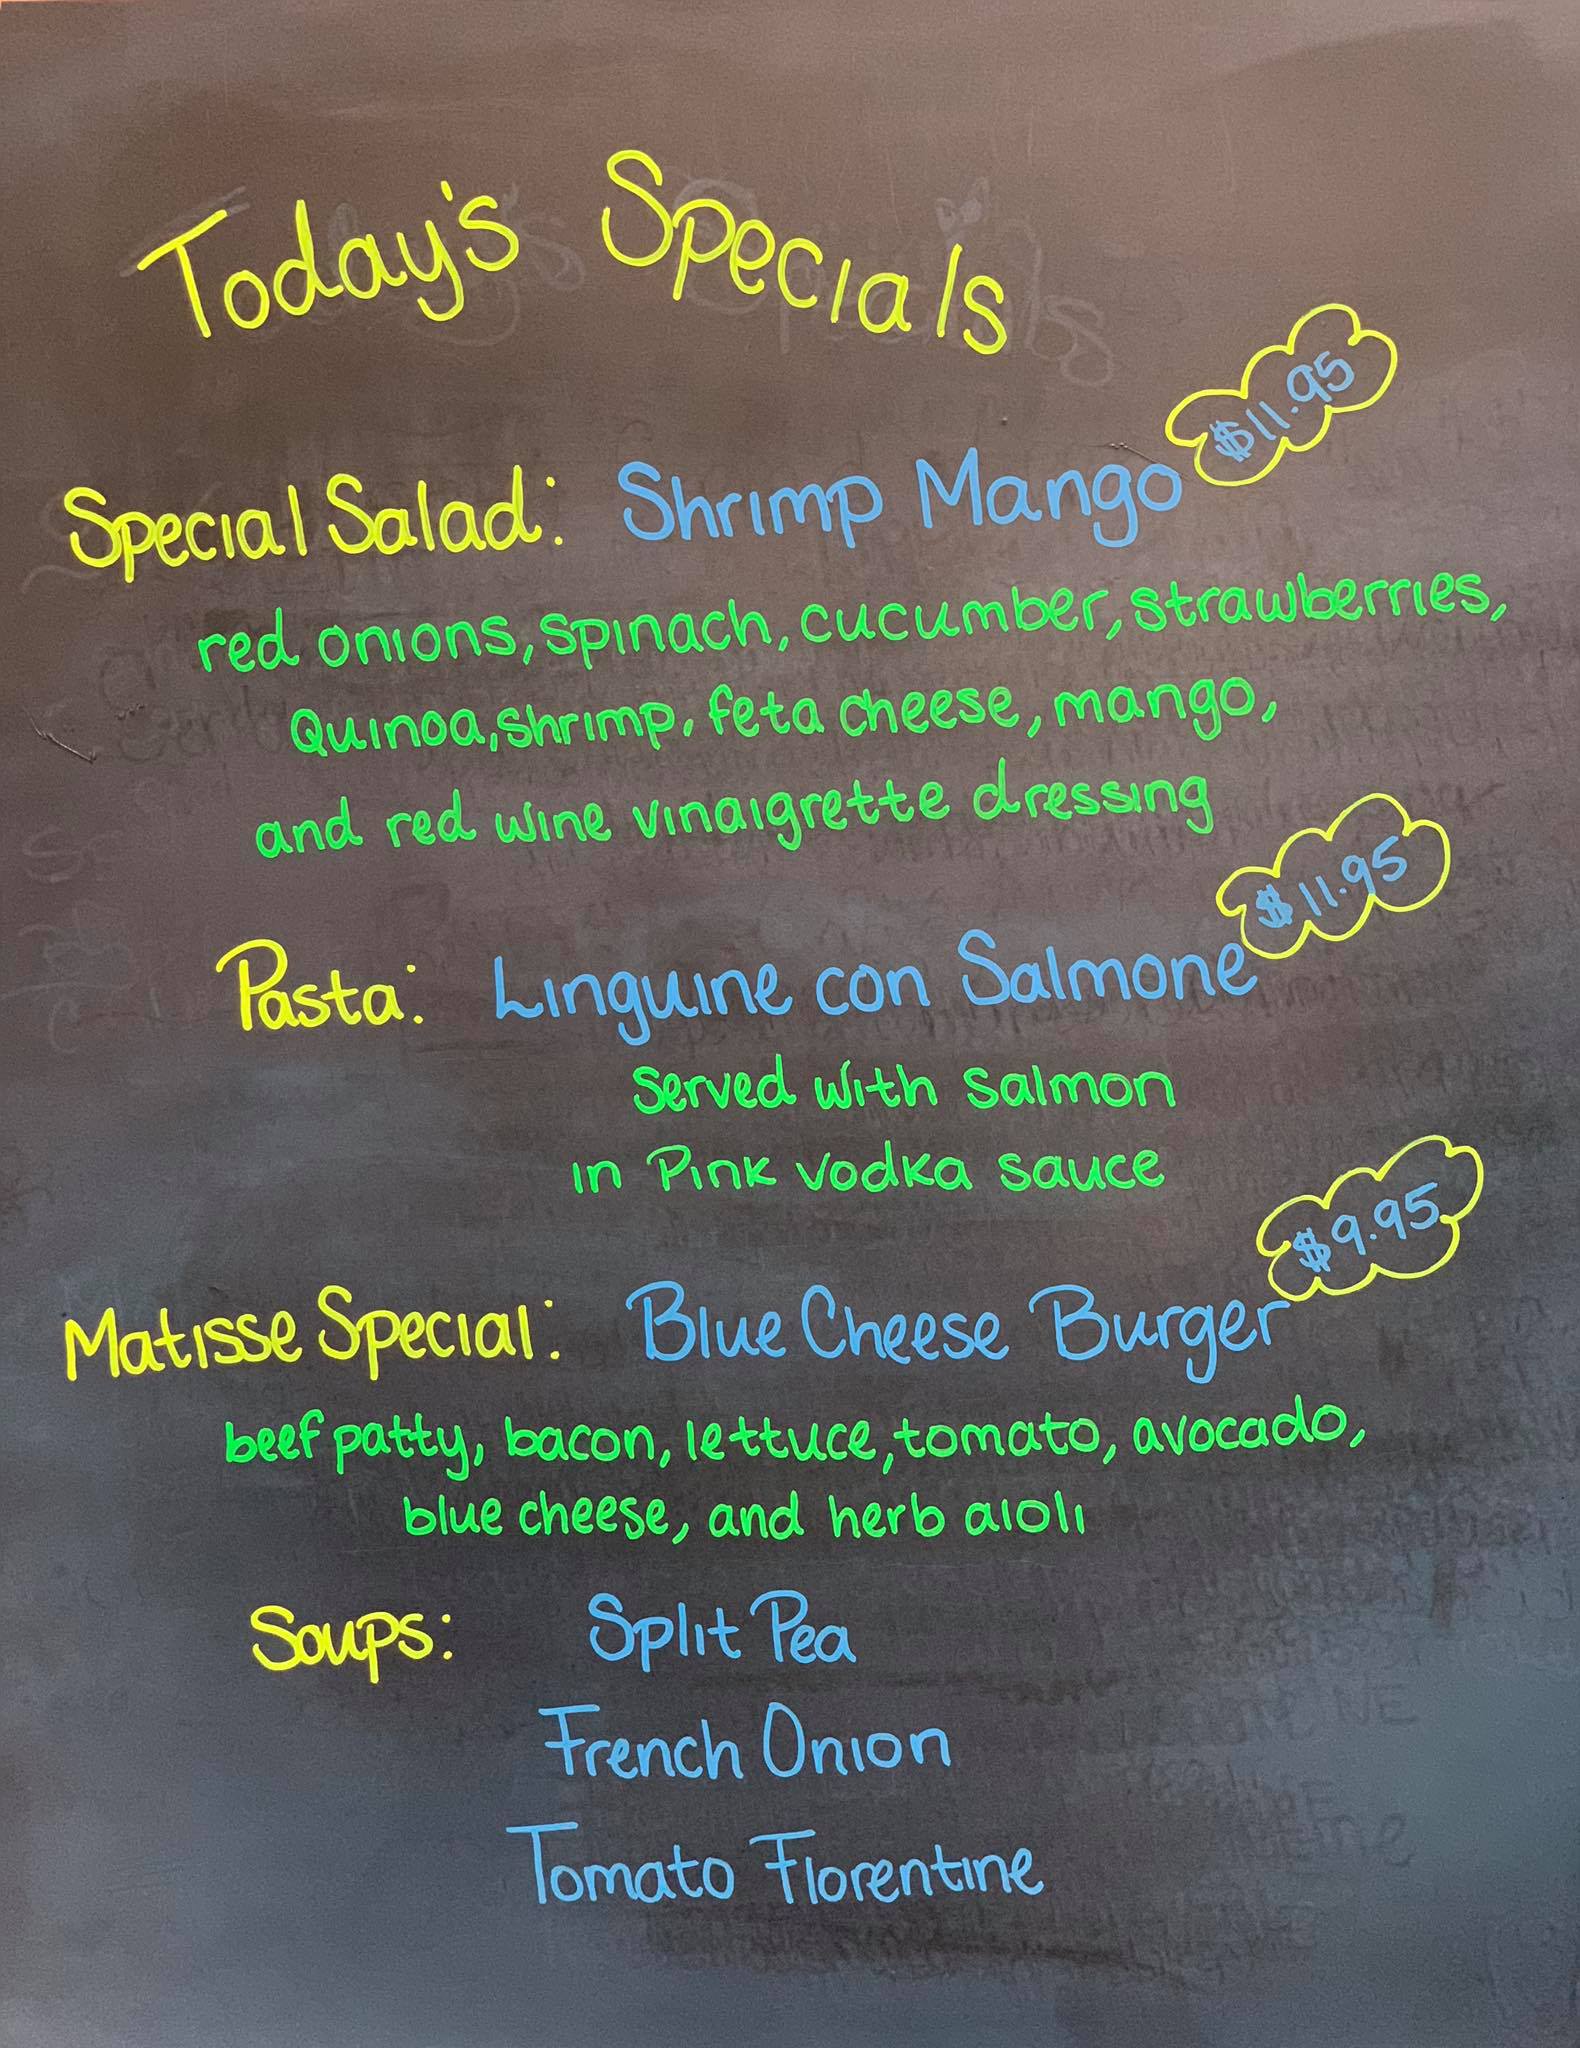 Today's Specials
$11.95
Special Salad: Shrimp Mango
red onions, spinach, cucumber, strawberries,
Quinoa, shrimp, feta cheese, mango,
and red wine vinaigrette dressing
$11.95
Pasta: Linguine con Salmone
Served with salmon
in Pink vodka sauce
$9.95
Matisse Special: Blue Cheese Burger
beef patty, bacon, lettuce, tomato, avocado,
blue cheese, and herb aioli
Soups: Split Pea
French Onion
Tomato Florentine